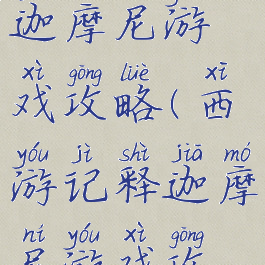 迦摩尼游
xì gōng lüè xī
戏攻略(西
yóu jì shì jiā mó
游记释迦摩
ní yóu xì gōng
尼游戏攻